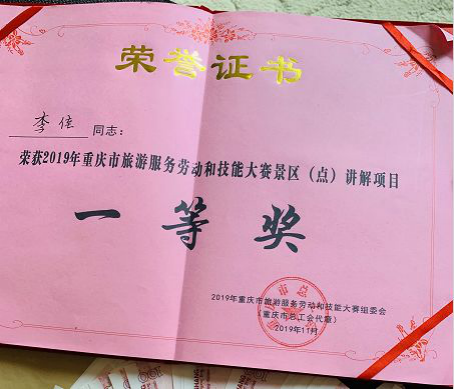 荣誉证书
李佳 同志：
荣获2019年重庆市旅游服务劳动和技能大赛景区（点）讲解项目
一等奖
2019年重庆市旅游服务劳动和技能大赛组委会
（重庆市总工会代章）
2019年11月